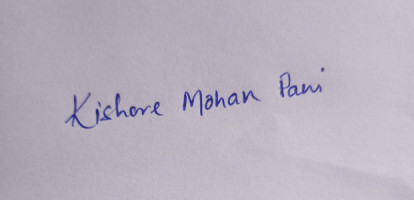 Kishore Mohan Pani